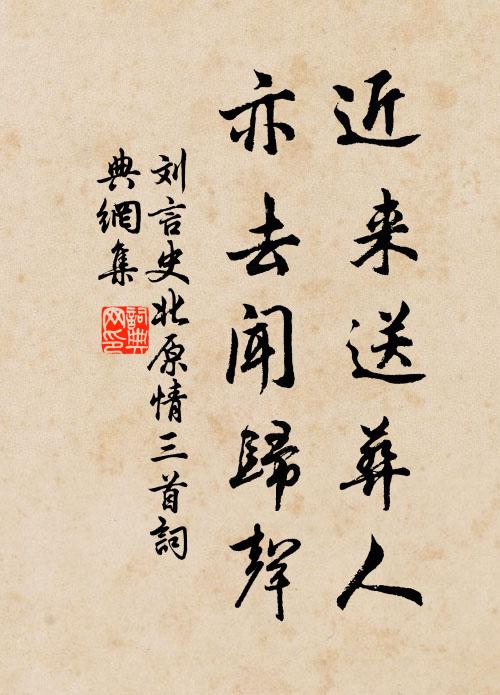 近来送葬人
亦去聞歸聲
刘言史北原情三首詞
典網集
詞典
网印